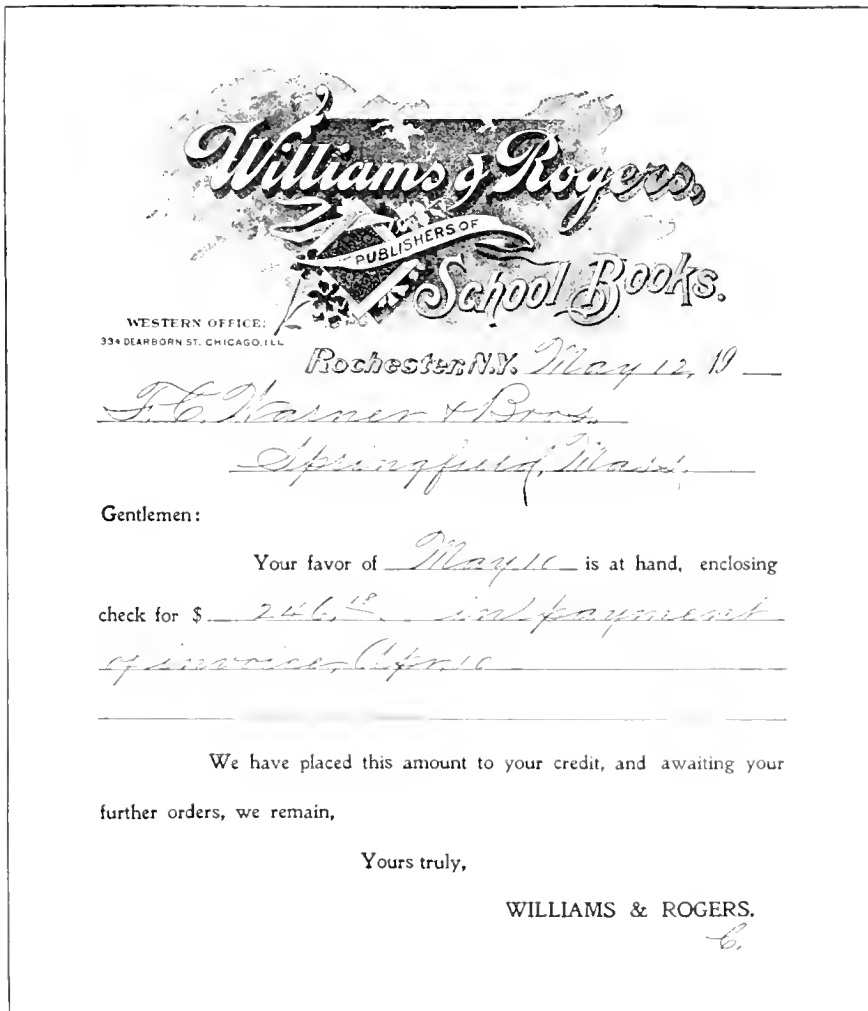 Williams & Rogers,
PUBLISHERS OF
School Books.
WESTERN OFFICE:
334 DEARBORN ST. CHICAGO, ILL
Rochester, N.Y. May 12, 19
F. C. Warner & Bros.
Springfield, Mass.
Gentlemen:
Your favor of May 10 is at hand, enclosing
check for $ 246.18 in payment
of invoice, Apr. 10
We have placed this amount to your credit, and awaiting your
further orders, we remain,
Yours truly,
WILLIAMS & ROGERS.
C.